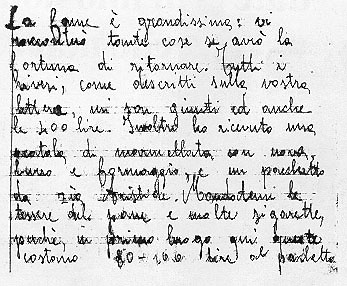 La fame è grandissima: vi
racconterò tante cose se avrò la
fortuna di ritornare. Tutti i
viveri, come descritti sulla vostra
lettera, mi son giunti ed anche
le 200 lire. Inoltre ho ricevuto una
scatola di marmellata con uova,
burro e formaggio, e un pacchetto
da zio. Mandatemi le
tessere del pane e molte sigarette,
perchè, in primo luogo qui queste
costano 80-100 lire al pacchetto